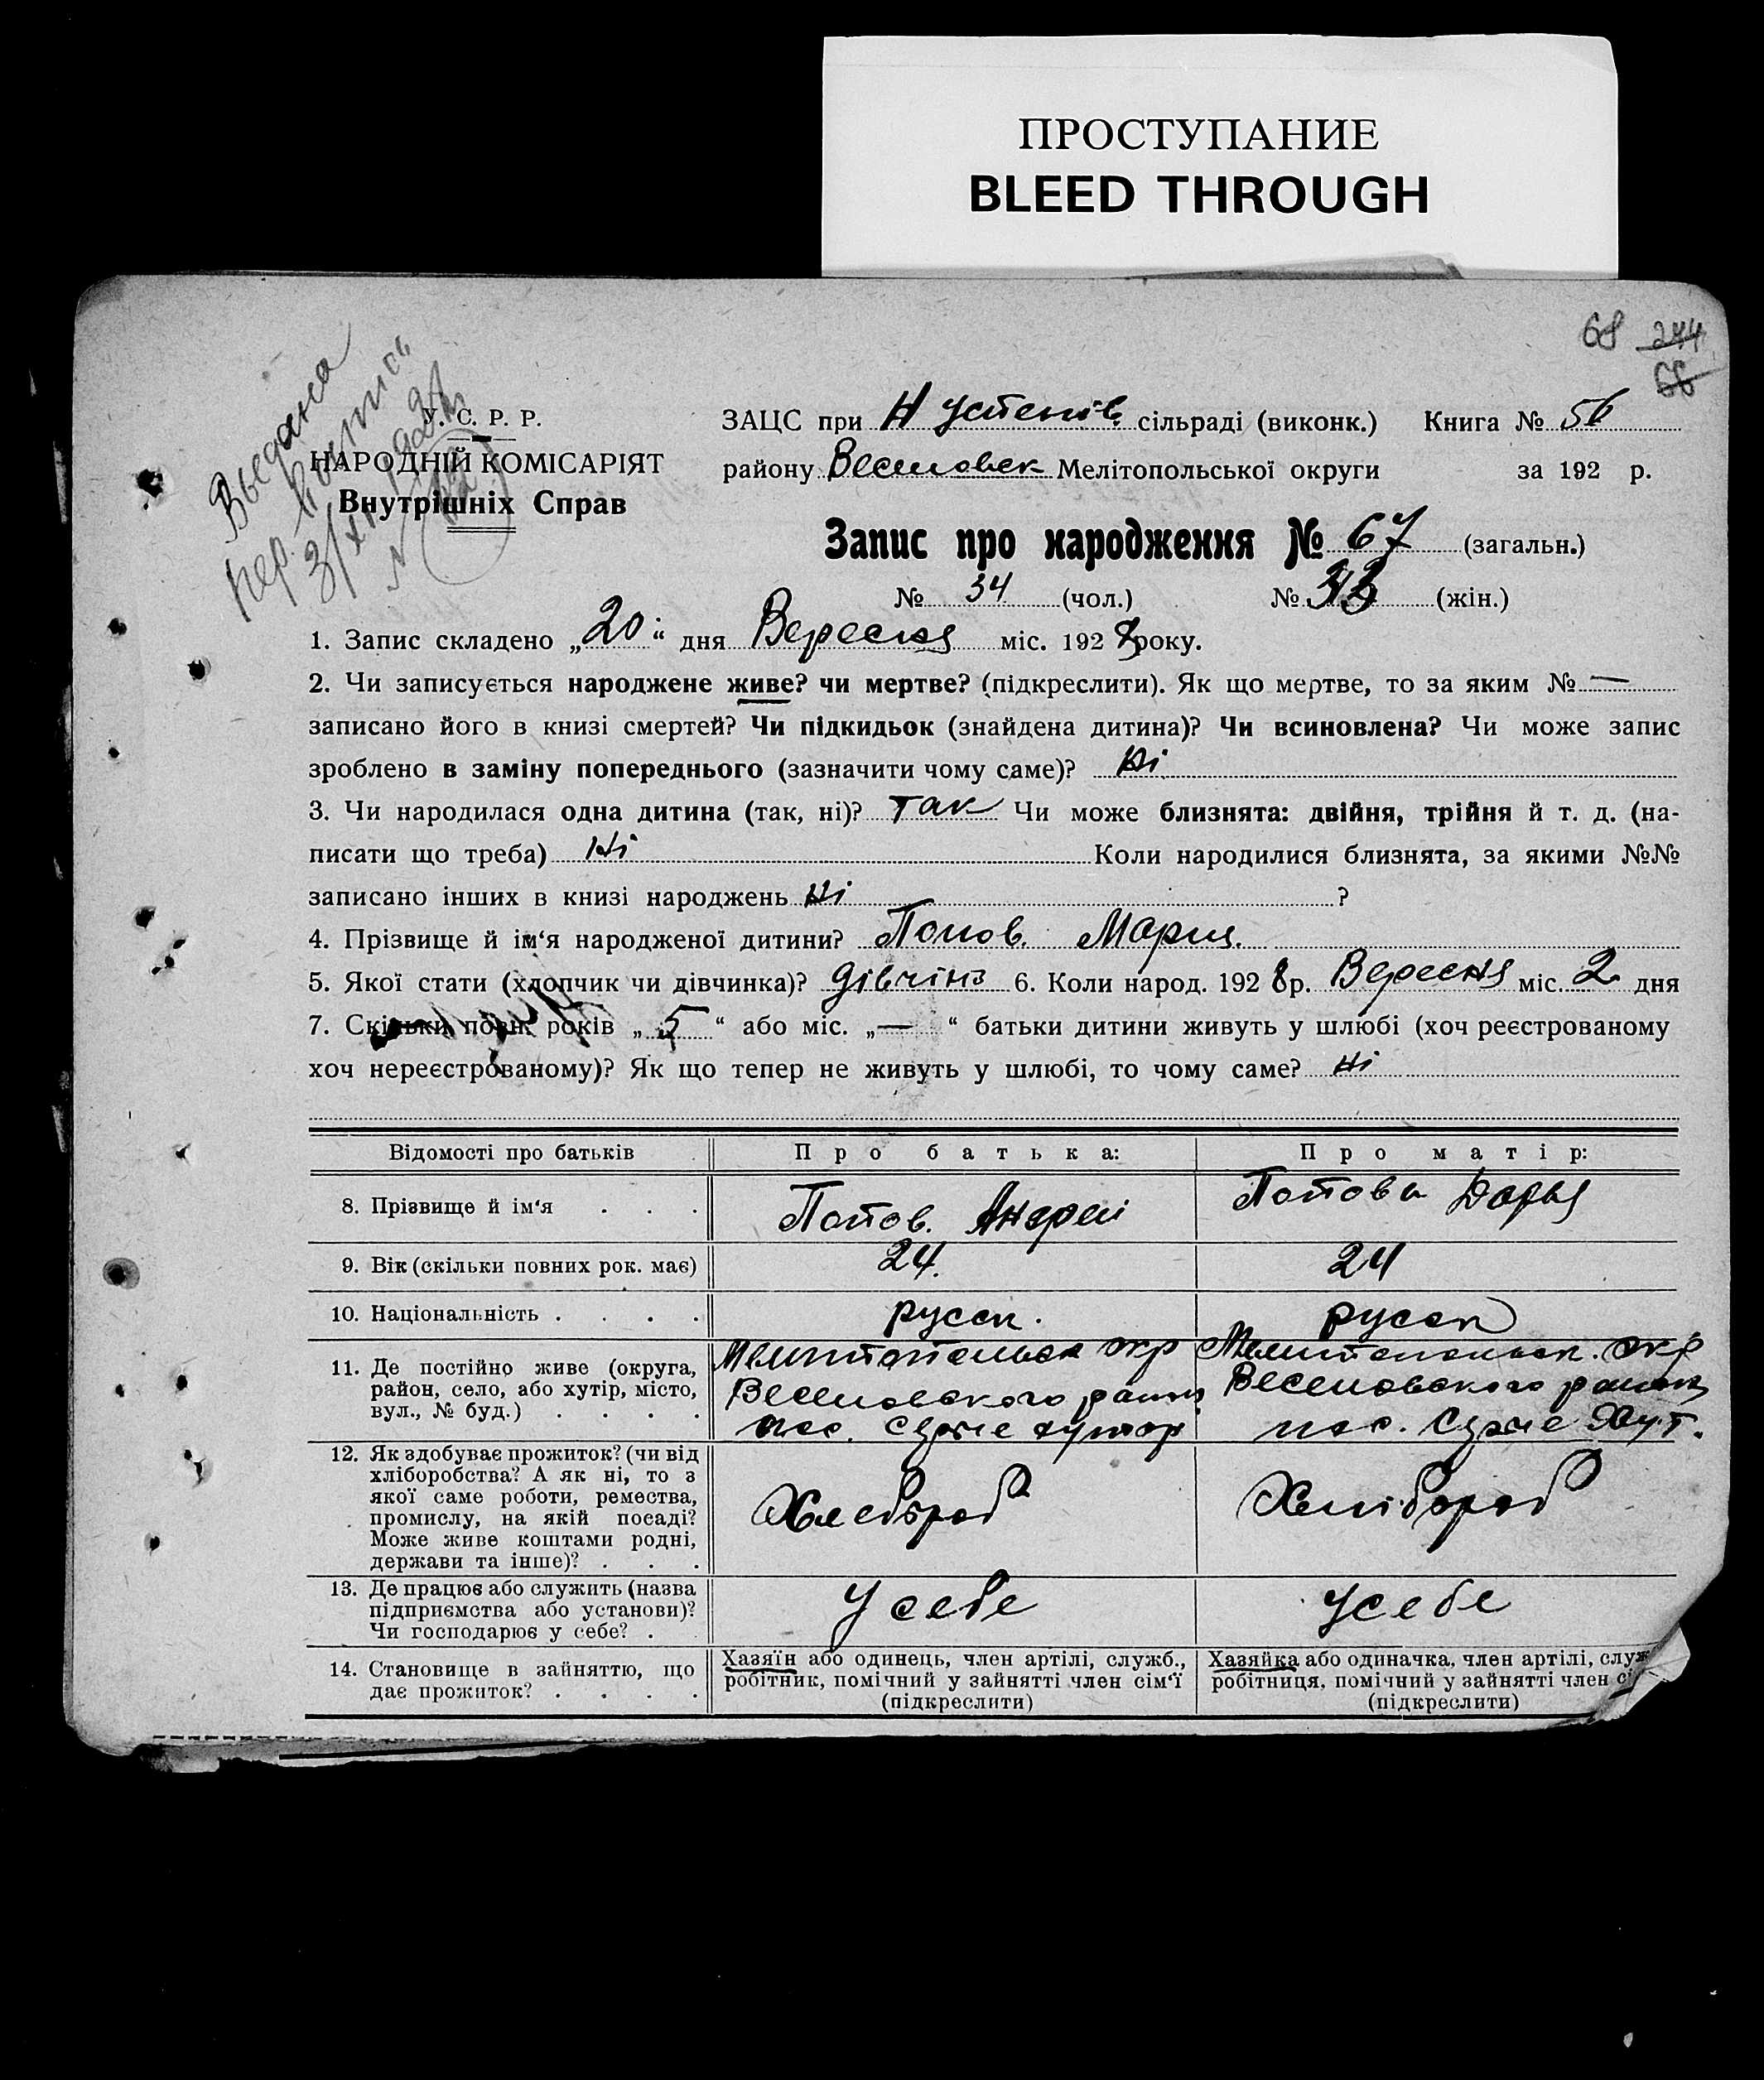 ПРОСТУПАНИЕ
BLEED THROUGH
68 244
66
Выедана
У. С. Р. Р.
НАРОДНІЙ КОМІСАРІЯТ
Внутрішніх Справ
ЗАЦС при Н Успенів. сільраді (виконк.) Книга № 56
району Веселовск Мелітопольської округи за 192 р.
Запис про народження № 67 (загальн.)
№ 34 (чол.) № 33 (жін.)
1. Запис складено „20“ дня Вересня міс. 1928 року.
2. Чи записується народжене живе? чи мертве? (підкреслити). Як що мертве, то за яким № —
записано його в книзі смертей? Чи підкидьок (знайдена дитина)? Чи всиновлена? Чи може запис
зроблено в заміну попереднього (зазначити чому саме)? Ні
3. Чи народилася одна дитина (так, ні)? Так Чи може близнята: двійня, трійня й т. д. (на-
писати що треба) Ні Коли народилися близнята, за якими №№
записано інших в книзі народжень Ні ?
4. Прізвище й ім‘я народженої дитини? Попов. Мария.
5. Якої стати (хлопчик чи дівчинка)? дівчіна 6. Коли народ. 1928 р. Вересня міс. 2 дня
7. Скільки повн. років „5“ або міс. „—“ батьки дитини живуть у шлюбі (хоч реєстрованому
хоч нереєстрованому)? Як що тепер не живуть у шлюбі, то чому саме? Ні
Відомості про батьків Про батька: Про матір:
8. Прізвище й ім‘я . . . Попов. Андреи Попова Дарья
9. Вік (скільки повних рок. має) 24. 24
10. Національність . . . . русск. русск
11. Де постійно живе (округа, район, село, або хутір, місто, вул., № буд.) . . . . Мелитопольск окр Веселовского район пос. Сухие хутор Мелитопольск. окр Веселовского район пос. Сухие Хут.
12. Як здобуває прожиток? (чи від хліборобства? А як ні, то з якої саме роботи, ремества, промислу, на якій посаді? Може живе коштами родні, держави та інше)? . . . Хлебороб Хлібороб
13. Де працює або служить (назва підприємства або установи)? Чи господарює у себе? . У себе У себе
14. Становище в зайняттю, що дає прожиток? . . . . Хазяїн або одинець, член артілі, служб., робітник, помічний у зайнятті член сім‘ї (підкреслити) Хазяйка або одиначка, член артілі, служ робітниця, помічний у зайнятті член сі (підкреслити)